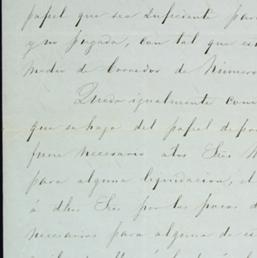 papel que sea suficiente para
y no pagada, con tal que es
medio de Corredor de Número
Queda igualmente conv
que se haga del papel de pro
fuere necesario a los Sres
para alguna liquidacion, el
á dhos Sres por los pocos d
necesarios para alguna de es